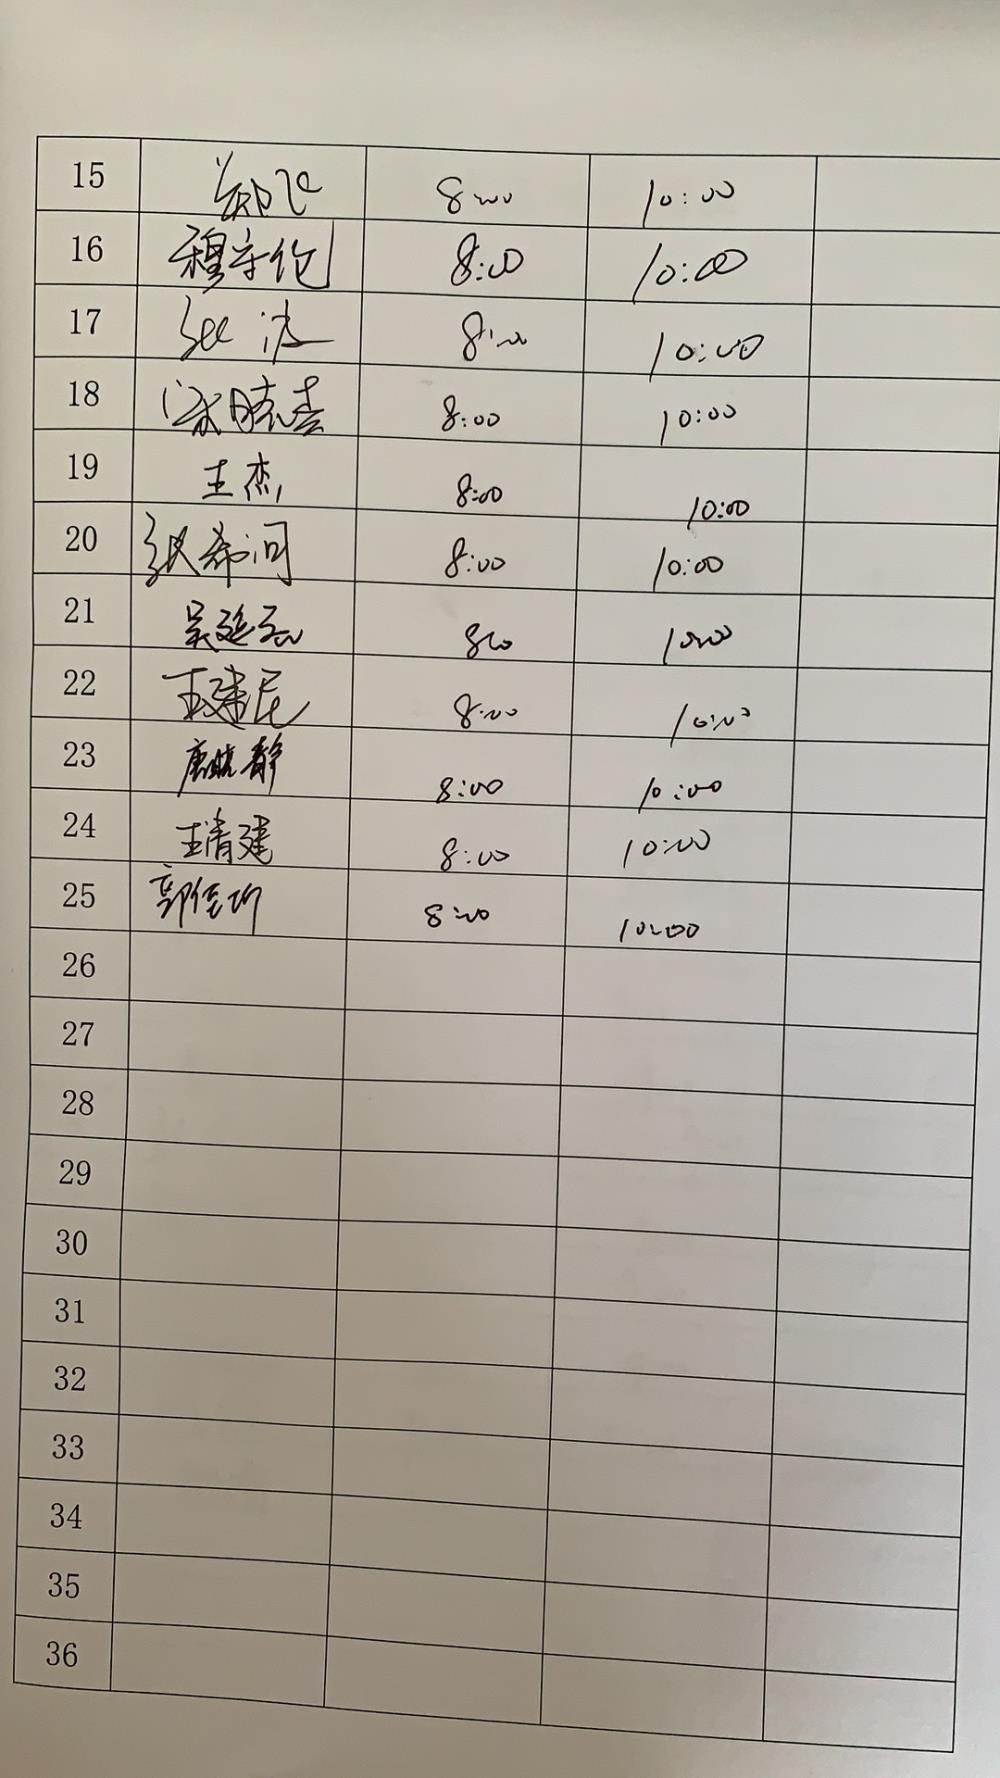 15 郑飞 8:00 10:00
16 穆守伦 8:00 10:00
17 波 8:00 10:00
18 梁晓春 8:00 10:00
19 王杰 8:00 10:00
20 张希问 8:00 10:00
21 吴延 8:00 10:00
22 王建尼 8:00 10:00
23 唐晓静 8:00 10:00
24 王清建 8:00 10:00
25 郭佳 8:00 10:00
26
27
28
29
30
31
32
33
34
35
36